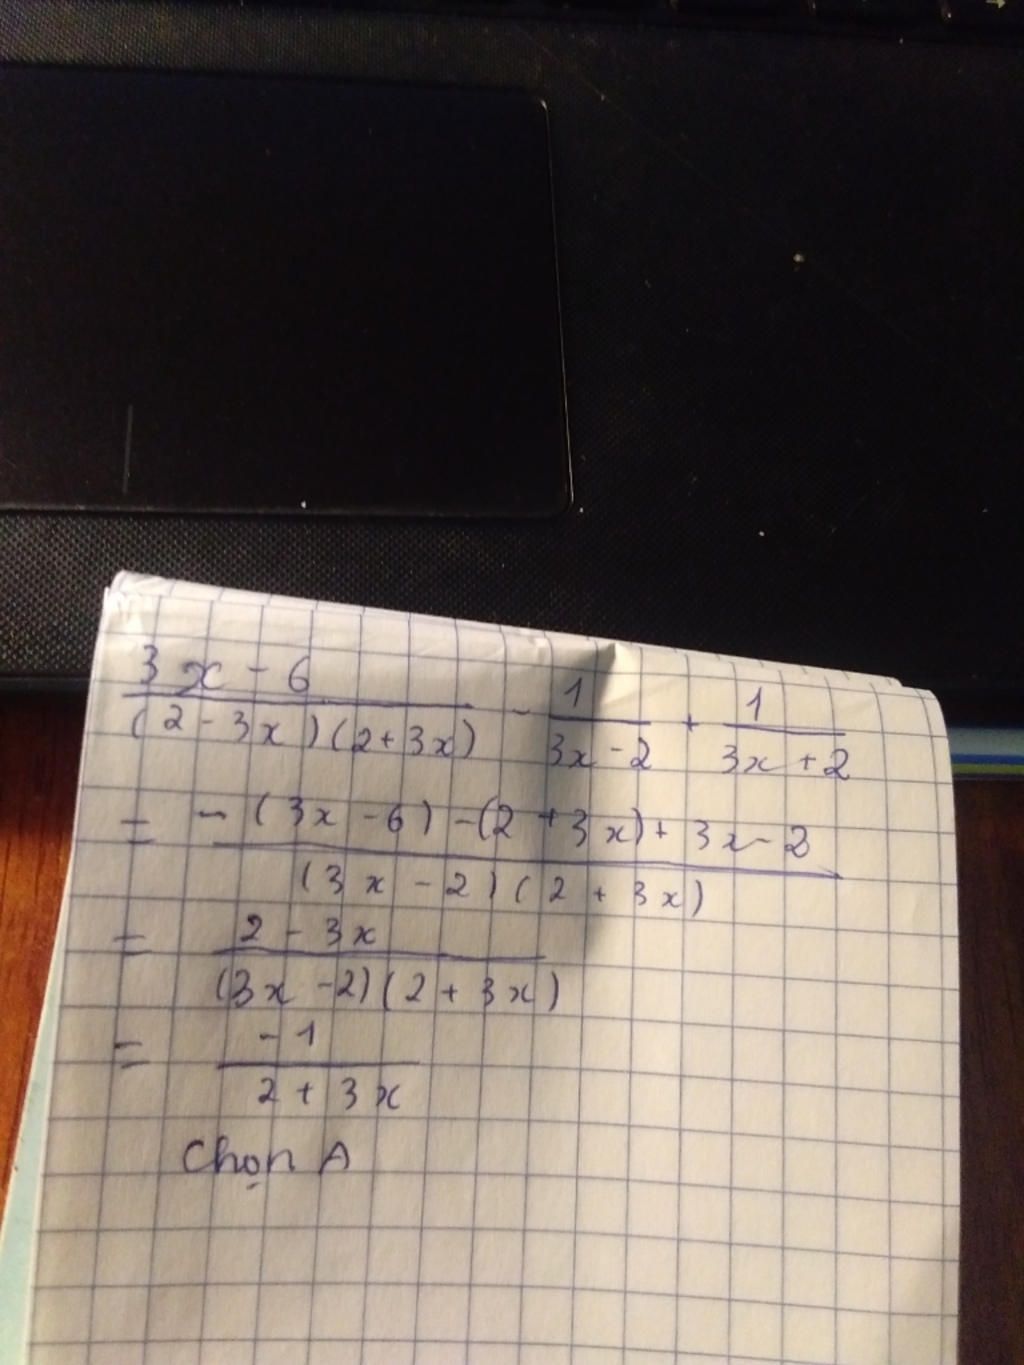 3x - 6 / (2 - 3x)(2 + 3x) - 1 / 3x - 2 + 1 / 3x + 2
= - (3x - 6) - (2 + 3x) + 3x - 2 / (3x - 2)(2 + 3x)
= 2 - 3x / (3x - 2)(2 + 3x)
= -1 / 2 + 3x
Chọn A